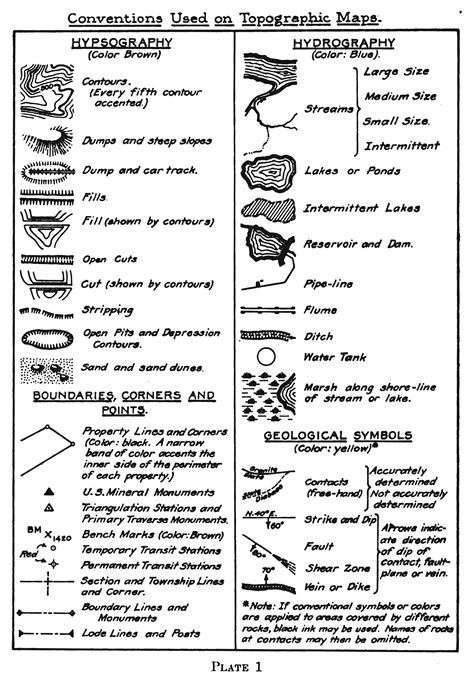 Conventions Used on Topographic Maps.
HYPSOGRAPHY
(Color Brown)
800
Contours.
(Every fifth contour
accented.)
Dumps and steep slopes
Dump and car track.
Fills.
Fill (shown by contours)
Open Cuts
Cut (shown by contours)
Stripping
Open Pits and Depression
Contours.
Sand and sand dunes.
BOUNDARIES, CORNERS AND
POINTS.
Property Lines and Corners
(Color: black. A narrow
band of color accents the
inner side of the perimeter
of each property.)
U.S. Mineral Monuments
Triangulation Stations and
Primary Traverse Monuments.
BM
1420
Bench Marks (Color: Brown)
Red
Temporary Transit Stations
Permanent Transit Stations
Section and Township Lines
and Corner.
Boundary Lines and
Monuments
Lode Lines and Posts
HYDROGRAPHY
(Color: Blue).
Streams
Large Size
Medium Size
Small Size.
Intermittent
Lakes or Ponds
Intermittent Lakes
Reservoir and Dam.
8"
Pipe-line
Flume
Ditch
Water Tank
Marsh along shore-line
of stream or lake.
GEOLOGICAL SYMBOLS
(Color: yellow)*
Granite
Slate
Slate
Diabase
Contacts
(free-hand)
Accurately
determined
Not accurately
determined
N.40°E.
60°
Strike and Dip
60°
Fault
Shear Zone
70°
Vein or Dike
Arrows indic-
ate direction
of dip of
contact, fault-
plane or vein.
*Note: If conventional symbols or colors
are applied to areas covered by different
rocks, black ink may be used. Names of rocks
at contacts may then be omitted.
PLATE 1